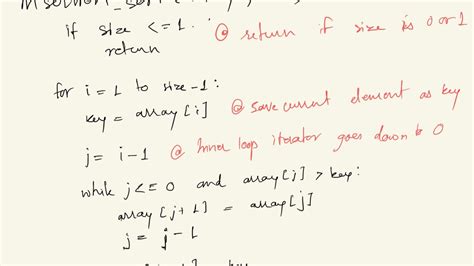 if size <= 1: @ return if size is 0 or 1
return
for i = 1 to size-1:
key = array[i] @ save current element as key
j = i-1 @ Inner loop iterator goes down to 0
while j <= 0 and array[j] > key:
array[j+1] = array[j]
j = j-1